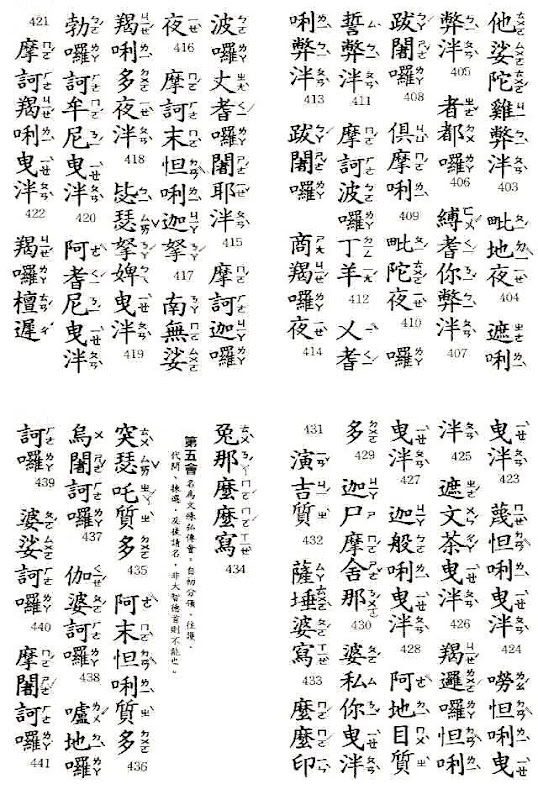 他娑陀雞弊泮 403 毗地夜 404 遮唎
弊泮 405 者都囉 406 縛耆你弊泮 407
跋闍囉 408 俱摩唎 409 毗陀夜 410 囉
誓弊泮 411 摩訶波囉丁羊 412 乂耆
唎弊泮 413 跋闍囉商羯囉夜 414
波囉丈耆囉闍耶泮 415 摩訶迦囉
夜 416 摩訶末怛唎迦拏 417 南無娑
羯唎多夜泮 418 毖瑟拏婢曳泮 419
勃囉訶牟尼曳泮 420 阿耆尼曳泮
421 摩訶羯唎曳泮 422 羯囉檀遲
曳泮 423 蔑怛唎曳泮 424 嘮怛唎曳
泮 425 遮文茶曳泮 426 羯邏囉怛唎
曳泮 427 迦般唎曳泮 428 阿地目質
多 429 迦尸摩舍那 430 婆私你曳泮
431 演吉質 432 薩埵婆寫 433 麼麼印
兔那麼麼寫 434
第五會 名為文殊弘傳會。自初分領,往護,
代問、揀選,及後請名,非大智德首則不能也。
突瑟吒質多 435 阿末怛唎質多 436
烏闍訶囉 437 伽婆訶囉 438 嚧地囉
訶囉 439 婆娑訶囉 440 摩闍訶囉 441